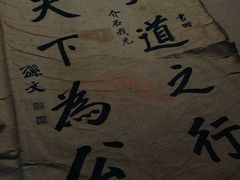 道之行
介石我兄
天下為
孫文